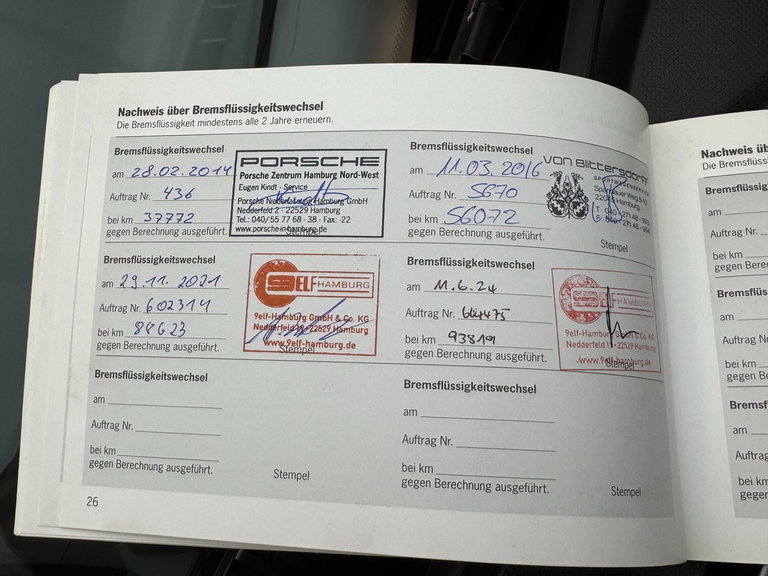 Nachweis über Bremsflüssigkeitswechsel
Die Bremsflüssigkeit mindestens alle 2 Jahre erneuern.
Bremsflüssigkeitswechsel
am 28.02.2014
Auftrag Nr. 436
bei km 37772
gegen Berechnung ausgeführt.
PORSCHE
Porsche Zentrum Hamburg Nord-West
Eugen Kindt - Service
Porsche Niederlassung Hamburg GmbH
Nedderfeld 2 - 22529 Hamburg
Tel.: 040/ 55 77 68 - 38 - Fax: -22
www.porsche-in-hamburg.de
Stempel
Bremsflüssigkeitswechsel
am 11.03.2016
Auftrag Nr. 5670
bei km 56072
gegen Berechnung ausgeführt.
VON Blittersdorff
SPORTWAGENSERVICE
Hamburg
Stempel
Bremsflüssigkeitswechsel
am 29.11.2021
Auftrag Nr. 602314
bei km 84623
gegen Berechnung ausgeführt.
9ELF HAMBURG
9elf-Hamburg GmbH & Co. KG
Nedderfeld 19 - 22529 Hamburg
www.9elf-hamburg.de
Stempel
Bremsflüssigkeitswechsel
am 11.6.24
Auftrag Nr. 604475
bei km 93819
gegen Berechnung ausgeführt.
9ELF HAMBURG
9elf-Hamburg GmbH & Co. KG
Nedderfeld 19 - 22529 Hamburg
www.9elf-hamburg.de
Stempel
Bremsflüssigkeitswechsel
am
Auftrag Nr.
bei km
gegen Berechnung ausgeführt.
Stempel
Bremsflüssigkeitswechsel
am
Auftrag Nr.
bei km
gegen Berechnung ausgeführt.
Stempel
26
Nachweis üb
Die Bremsflüssi
Bremsflüssig
am
Auftrag Nr.
bei km
gegen Berec
Bremsflüssi
am
Auftrag Nr.
bei km
gegen Be
Bremsf
am
Auftrag
bei km
gegen